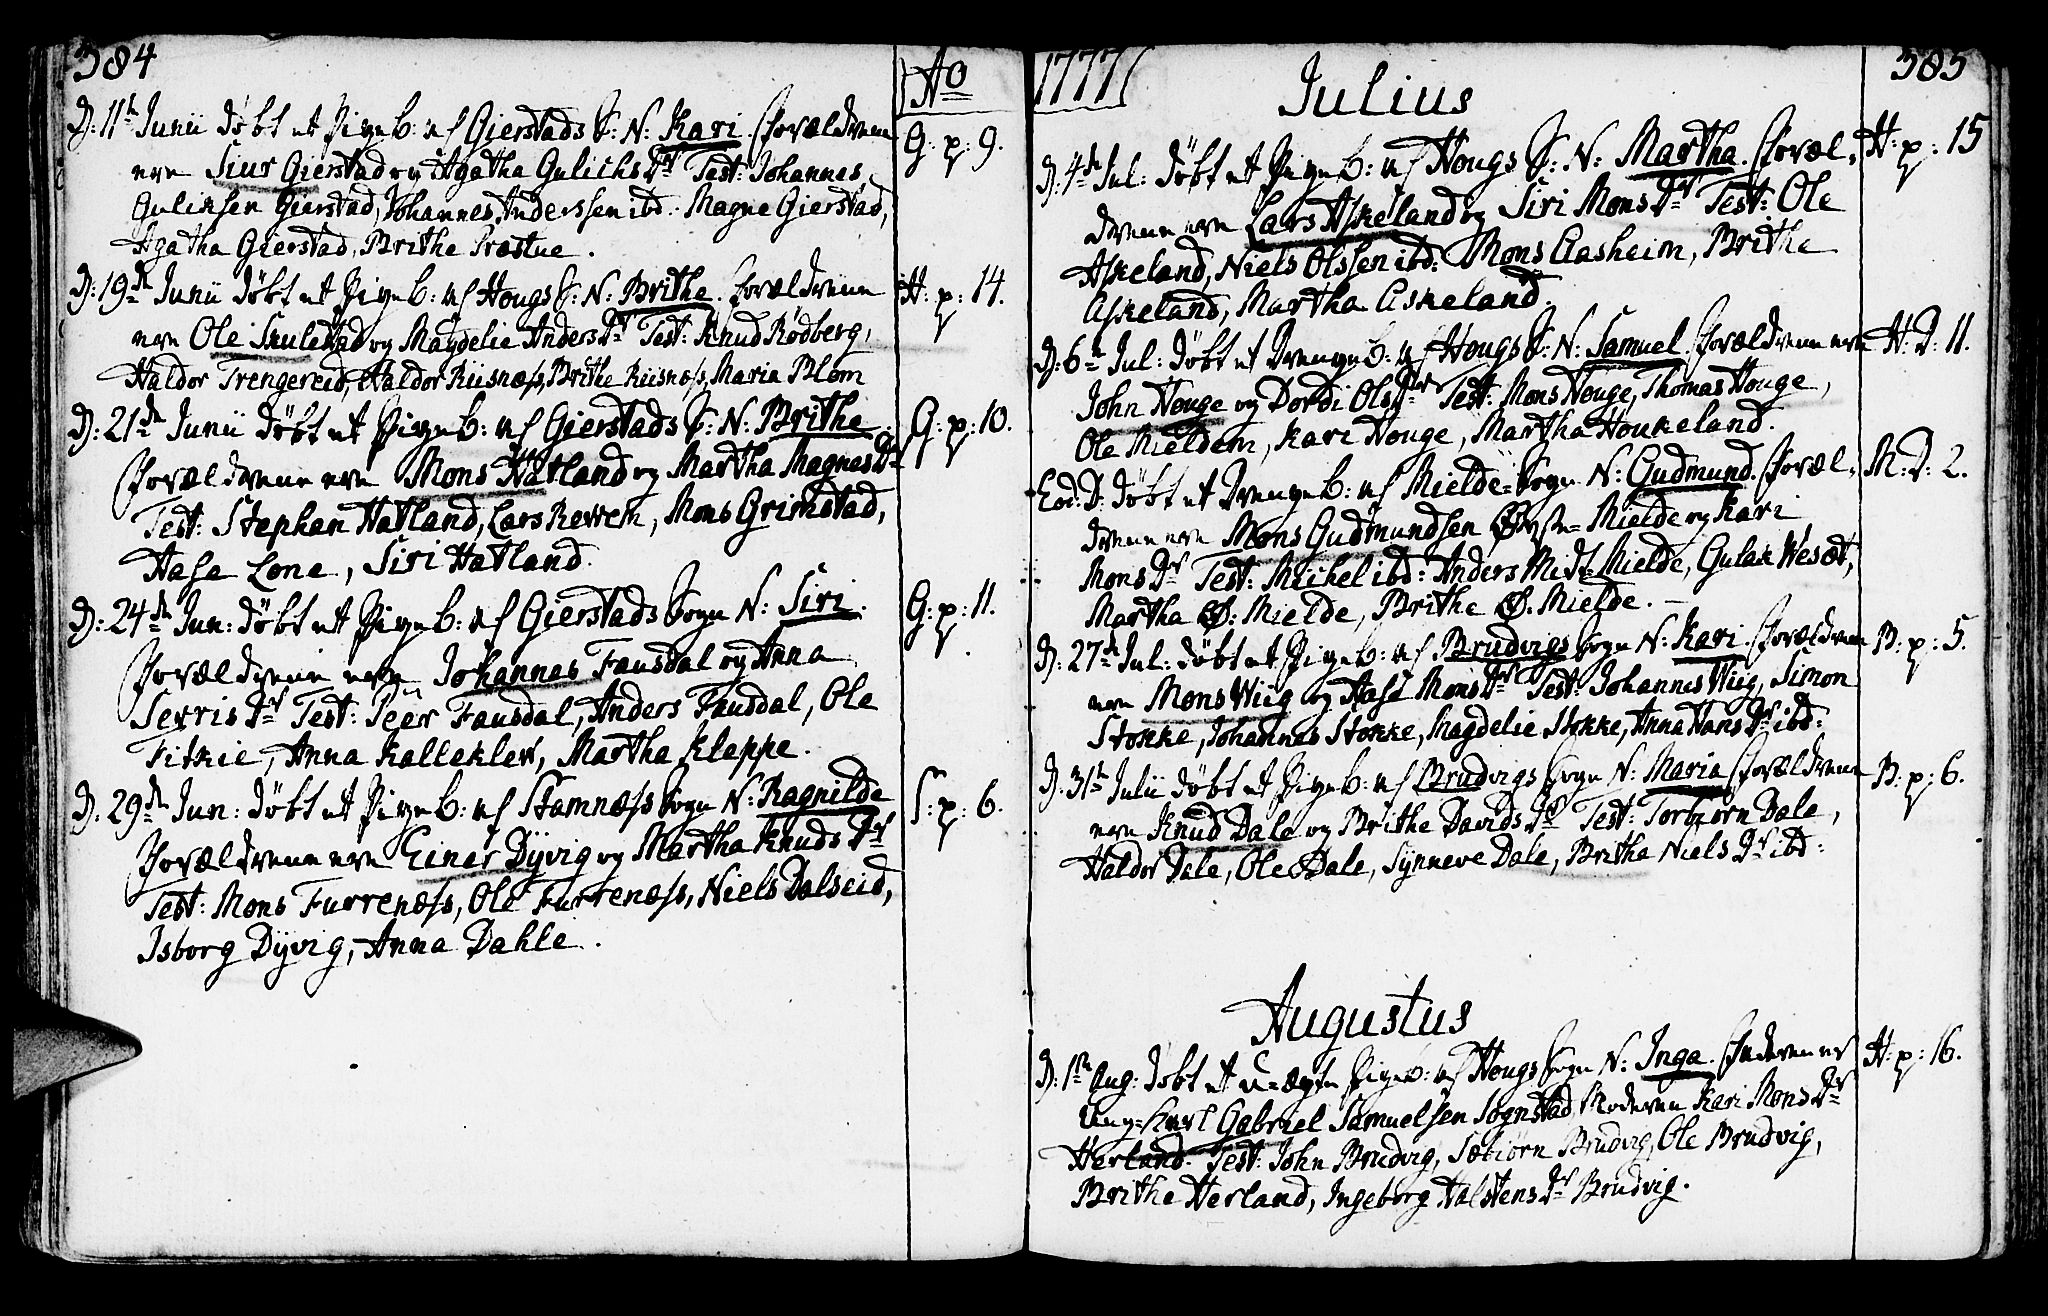 384
Ao
D: 11te Junii døbt et Pigeb: af Gierstads S: N: Kari. Forældrene
G: p: 9.
ere Siur Gierstad og Agatha Gulichs Dr Test: Johannes
Guliksen Gierstad, Johannes Anderssen ibd: Magne Gierstad,
Agatha Gierstad, Brithe Præstue.
D: 19de Junii døbt et Pigeb: af Hougs S: N: Brithe. Forældrene
H: p: 14.
ere Ole Skulestad og Magdelie Anders Dr Test: Knud Rødberg,
Haldor Trengereid, Haldor Riisnæss, Brithe Riisnæss, Maria Blom
D: 21de Junii døbt et Pigeb: af Gierstads S: N: Brithe.
G: p: 10.
Forældrene ere Mons Hatland og Martha Magnes Dr
Test: Stephan Hatland, Lars Revrem, Mons Grimstad,
Aase Lone, Siri Hatland.
D: 24de Jun: døbt et Pigeb: af Gierstads Sogn N: Siri.
G: p: 11.
Forældrene ere Johannes Fausdal og Anna
Serris Dr Test: Peer Fausdal, Anders Fausdal, Ole
Fitkie, Anna Kalleklev, Martha Kleppe.
D: 29de Jun: døbt et Pigeb: af Stamnæss Sogn N: Ragnilde
S: p: 6.
Forældrene ere Einar Dyvig og Martha Knuds Dr
Test: Mons Furrenæss, Ole Furrenæss, Niels Dalseid,
Isborg Dyvig, Anna Dahle.
1777
385
Julius
D: 4de Jul: døbt et Pigeb: af Hougs S: N: Martha. Foræl-
H: p: 15
drene ere Lars Askeland og Siri Mons Dr Test: Ole
Askeland, Niels Olssen ibd: Mons Aasheim, Brithe
Askeland, Martha Askeland.
D: 6te Jul: døbt et Drengeb: af Hougs S: N: Samuel. Forældrene ere
H: D: 11.
John Houge og Dordi Ols Dtr Test: Mons Houge, Thomas Houge,
Ole Mieldem, Kari Houge, Martha Houkeland.
Eod: D: døbt et Drengeb: af Mielde-Sogn N: Gudmund. Foræl-
M: D: 2.
drene ere Mons Gudmundsen Øvste-Mielde og Kari
Mons Dr Test: Michel ibd: Anders Midt-Mielde, Gulak Wesæt,
Martha Ø: Mielde, Brithe Ø. Mielde. -
D: 27de Jul: døbt et Pigeb: af Brudvigs Sogn N: Kari. Forældrene
B: p: 5.
ere Mons Wiig og Aase Mons Dr Test: Johannes Wiig, Simon
Stokke, Johannes Stokke, Magdelie Stokke, Anna Hans Dr ibd:
D: 31te Julii døbt et Pigeb: af Brudvigs Sogn N: Maria Forældrene
B: p: 6.
ere Knud Dale og Brithe Davids Dr Test: Torbiørn Dale,
Haldor Dale, Ole Dale, Synneve Dale, Britha Niels Dr ibd:
Augustus
D: 1ste Aug: døbt et u-ægte Pigeb: af Hougs Sogn N: Inga. Faderen er
H: p: 16.
Ung-Karl Gabriel Samuelsen Sognstad, Moderen Kari Mons Dr
Herland. Test: John Brudvig, Sæbiørn Brudvig, Ole Brudvig,
Brithe Herland, Ingeborg Halstens Dr Brudvig.